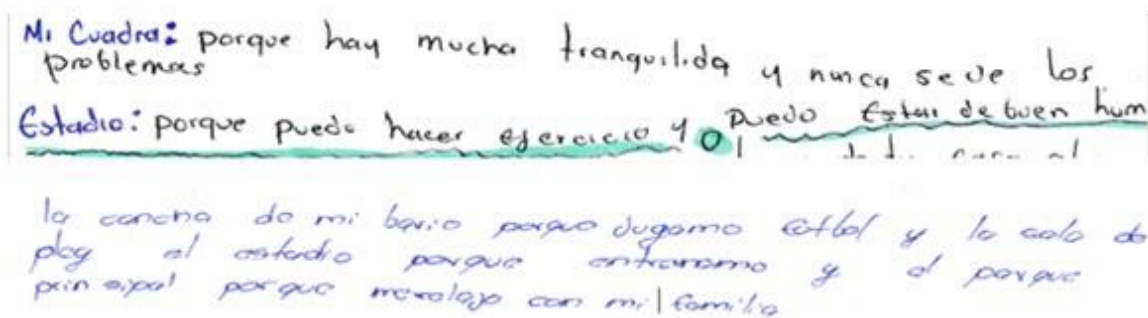 Mi Cuadra: porque hay mucha tranquilida y nunca se ve los
problemas
Estadio: porque puedo hacer ejercicio y o puedo Estar de buen hum
la cancha de mi bario porque Jugamo futbol y la sala de
play el estadio porque entrenamo y el parque
prinsipal porque merelajo con mi familia